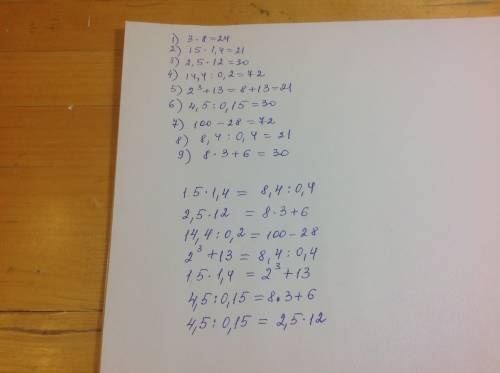 1) 3 · 8 = 24
2) 15 · 1,4 = 21
3) 2,5 · 12 = 30
4) 14,4 : 0,2 = 72
5) 2³ + 13 = 8 + 13 = 21
6) 4,5 : 0,15 = 30
7) 100 - 28 = 72
8) 8,4 : 0,4 = 21
9) 8 · 3 + 6 = 30
15 · 1,4 = 8,4 : 0,4
2,5 · 12 = 8 · 3 + 6
14,4 : 0,2 = 100 - 28
2³ + 13 = 8,4 : 0,4
15 · 1,4 = 2³ + 13
4,5 : 0,15 = 8 · 3 + 6
4,5 : 0,15 = 2,5 · 12